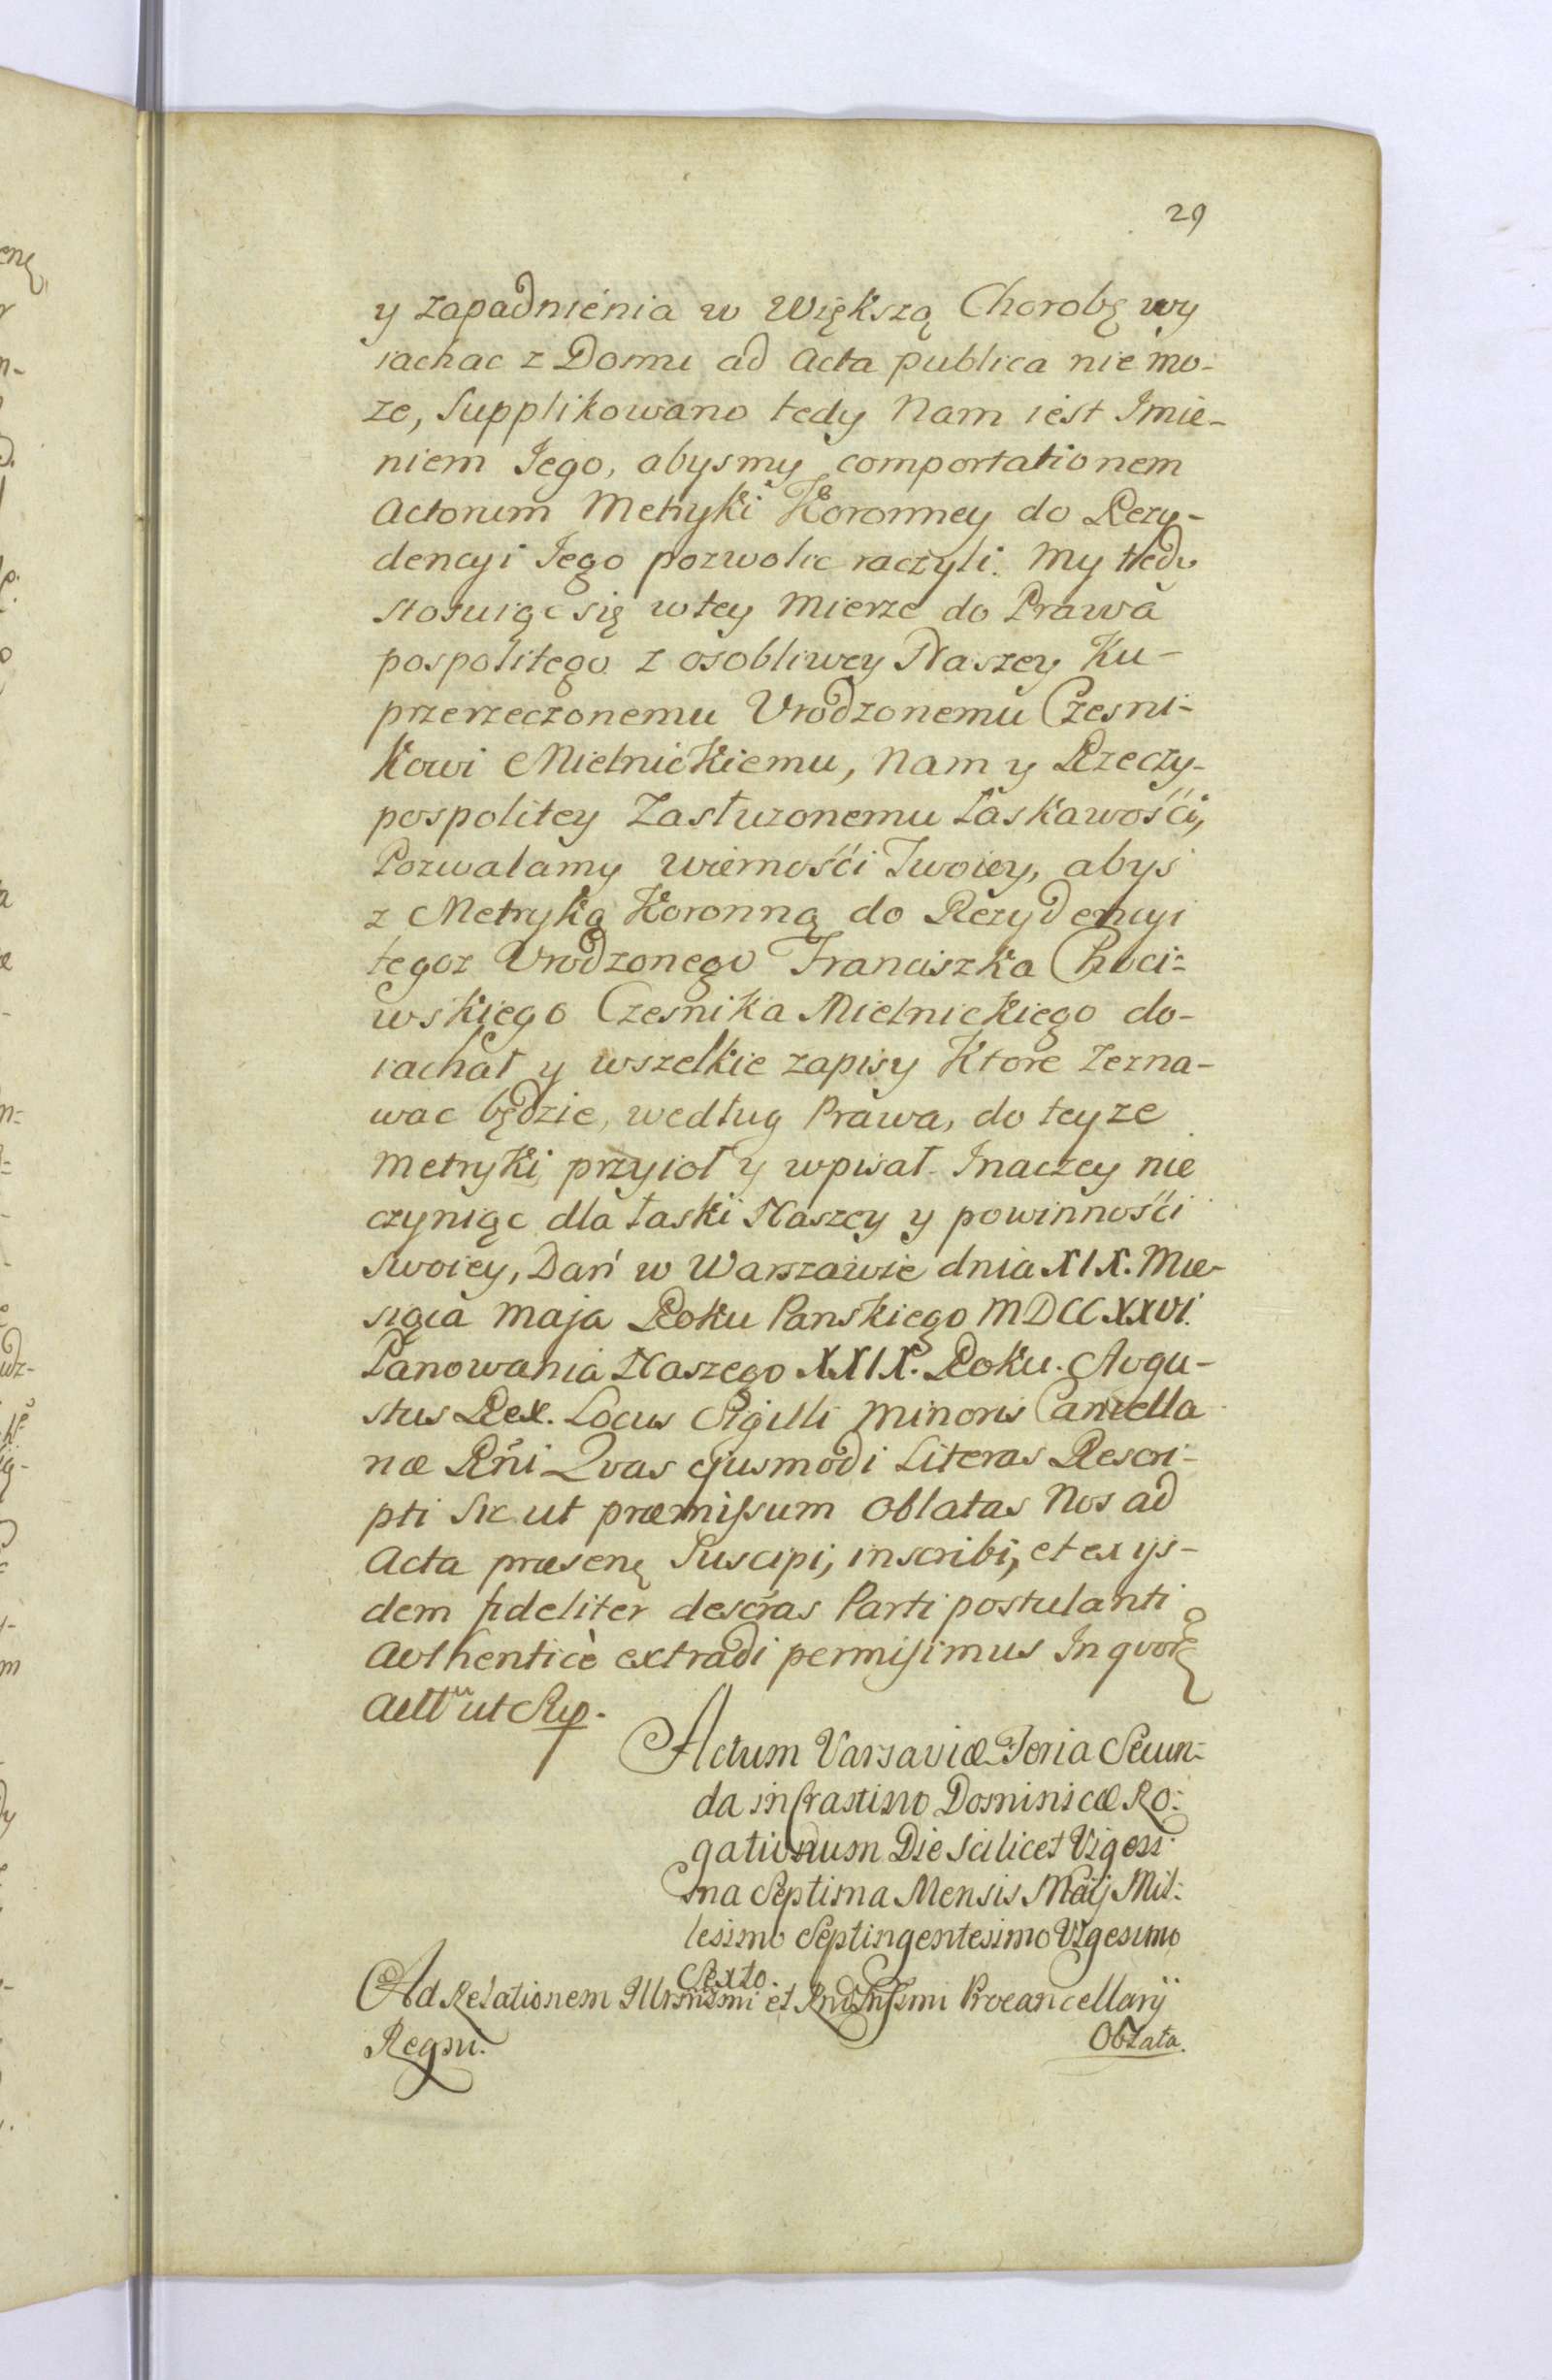 29
y zapadnienia w Większą Chorobę wy
iachac z Domu ad Acta publica nie mo-
ze, Supplikowano tedy Nam iest Imie-
niem Iego, abysmy comportationem
Actorum Metryki Koronney do Rezy-
dencyi Iego pozwolic raczyli. My tedy
stosuiąc się wtey mierze do Prawa
pospolitego z osobliwey Naszey Ku-
przerzeczonemu Vrodzonemu Czesni-
kowi Mielnickiemu, Nam y Rzeczy-
pospolitey Zasłuzonemu Łaskawośći,
Pozwalamy wiernośći Twoiey, abys
z Metryką Koronną do Rezydencyi
tegoz Vrodzonego Franciszka
wskiego Czesnika Mielnickiego do-
iachał y wszelkie zapisy Ktore Zezna-
wac będzie, według Prawa, do teyze
Metryki przyioł y wpisał. Inaczey nie
czyniąc dla łaski Naszey y powinnośći
Swoiey, Dań w Warszawie dnia XIX. Mie-
siąca Maja Roku Panskiego MDCCXXVI.
Panowania Naszego XXIX. Roku. Augu-
stus Rex. Locus Sigilli Minoris Cancella
næ Rñi Qvas ejusmodi Literas Rescri-
pti Sic ut præmissum Oblatas Nos ad
Acta præsenę Suscipi, inscribi, et ex ijs-
dem fideliter descr̃as Parti postulanti
Avthenticè extradi permisimus In qvorę
ut Sup.
Actum Varsaviæ Feria Secun-
da in Crastino Dominicæ Ro-
gationum Die Scilicet Vigesi-
ma Septima Mensis Maij Mil-
lesimo Septingentesimo Vigesimo
Sexto.
Ad Relationem Illrmi̇smi et Rndi̇ssimi Procancellarij
Regni. Oblata.